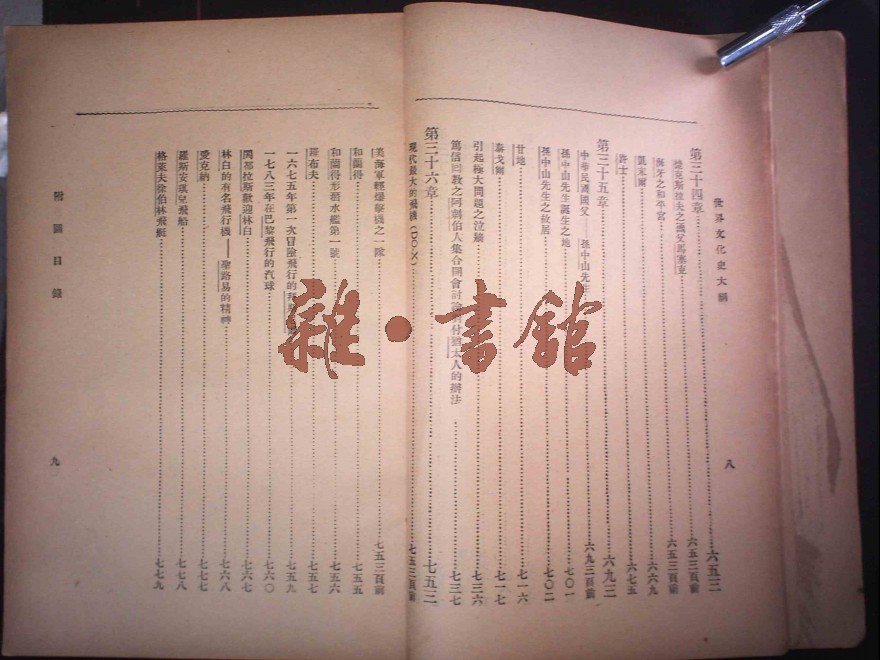 世界文化史大綱
八
第三十四章 六五三
捷克斯拉夫之國父馬塞克 六五三頁前
海牙之和平宮 六五三頁前
凱末爾 六六九
許士 六七五
第三十五章 六九三
中華民國國父——孫中山先 六九三頁前
孫中山先生誕生之地 七〇一
孫中山先生之故居 七〇二
甘地 七一六
泰戈爾 七一七
引起極大問題之泣牆 七三六
篤信回教之阿剌伯人集合開會討論 付猶太人的辦法 七三七
第三十六章 七五三
現代最大的飛機(DO-X) 七五三頁前
美海軍輕爆擊機之一隊 七五三頁前
和蘭得 七五五
和蘭得形潛水艦第一號 七五六
羅布夫 七五七
一六七五年第一次冒險飛行的 七五九
一七八三年在巴黎飛行的汽球 七六〇
閔都拉斯歡迎林白 七六七
林白的有名飛行機——聖路易的精神 七六八
愛克納 七七七
羅斯安琪兒飛船 七七八
格萊夫徐伯林飛艇 七七九
附圖目錄
九
雜·書館